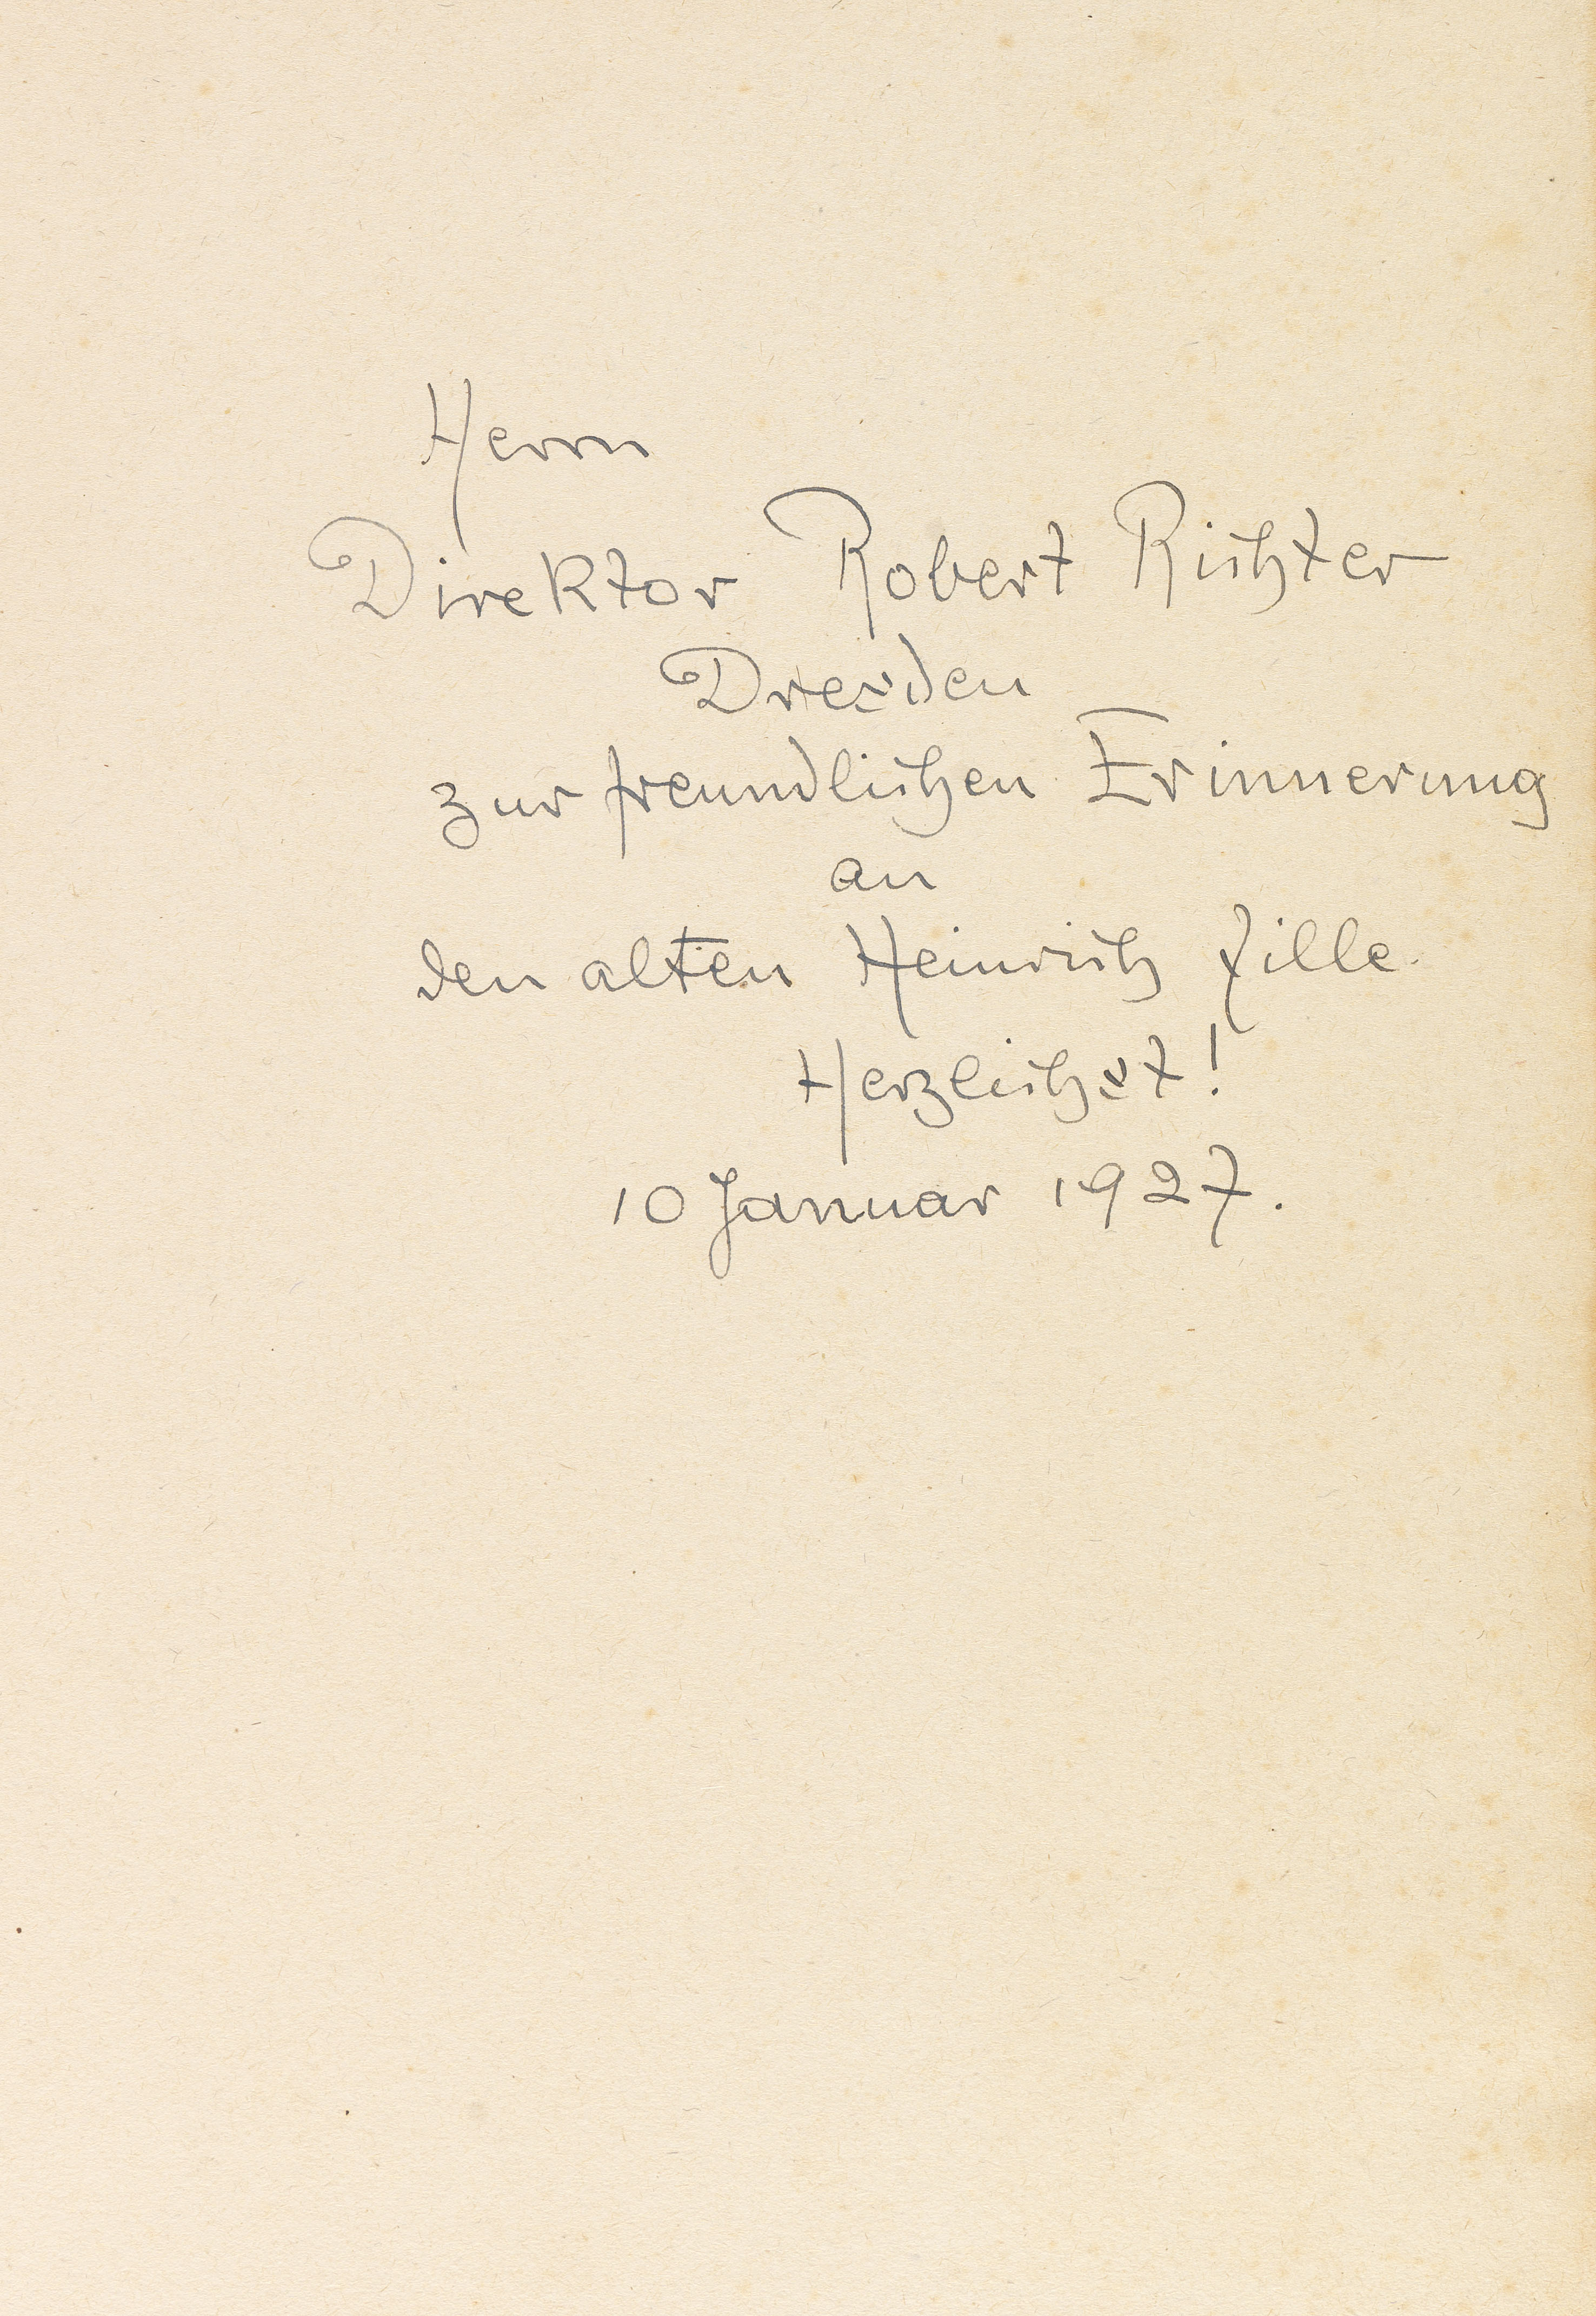 Herrn
Direktor Robert Richter
Dresden
zur freundlichen Erinnerung
an
den alten Heinrich Zille.
Herzlichst!
10 Januar 1927.